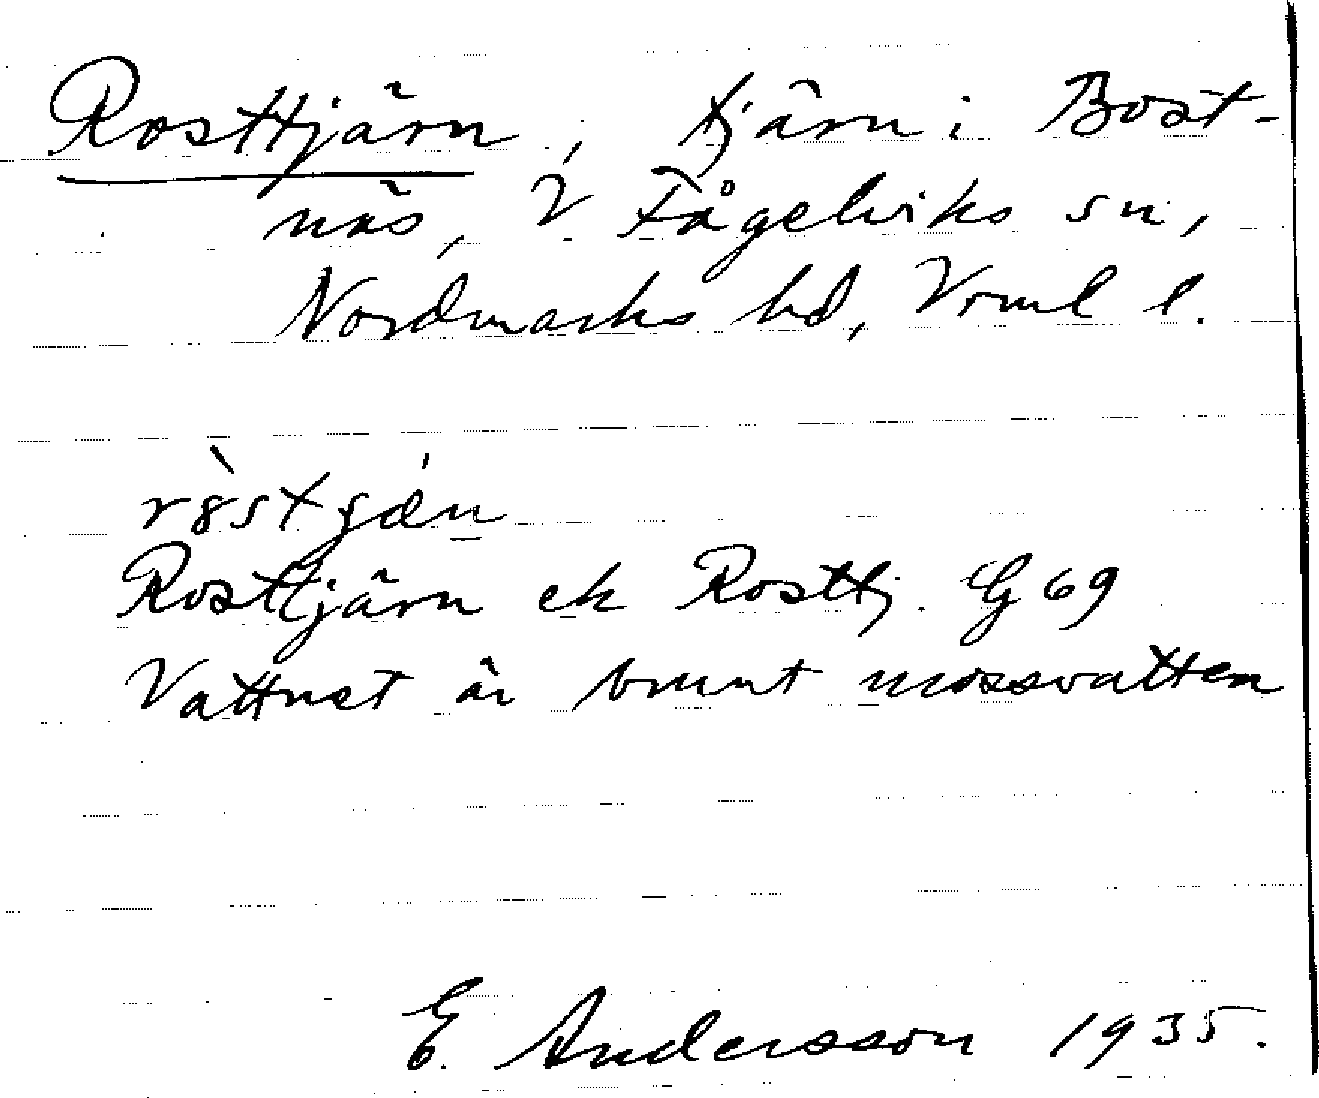 Rosttjärn, tjärn i Bost-
näs, V Fågelviks sn,
Nordmarks hd, Vrml l.
Rosttjärn ek Rosttj. G 69
Vattnet är brunt mossvatten
E. Andersson 1935.